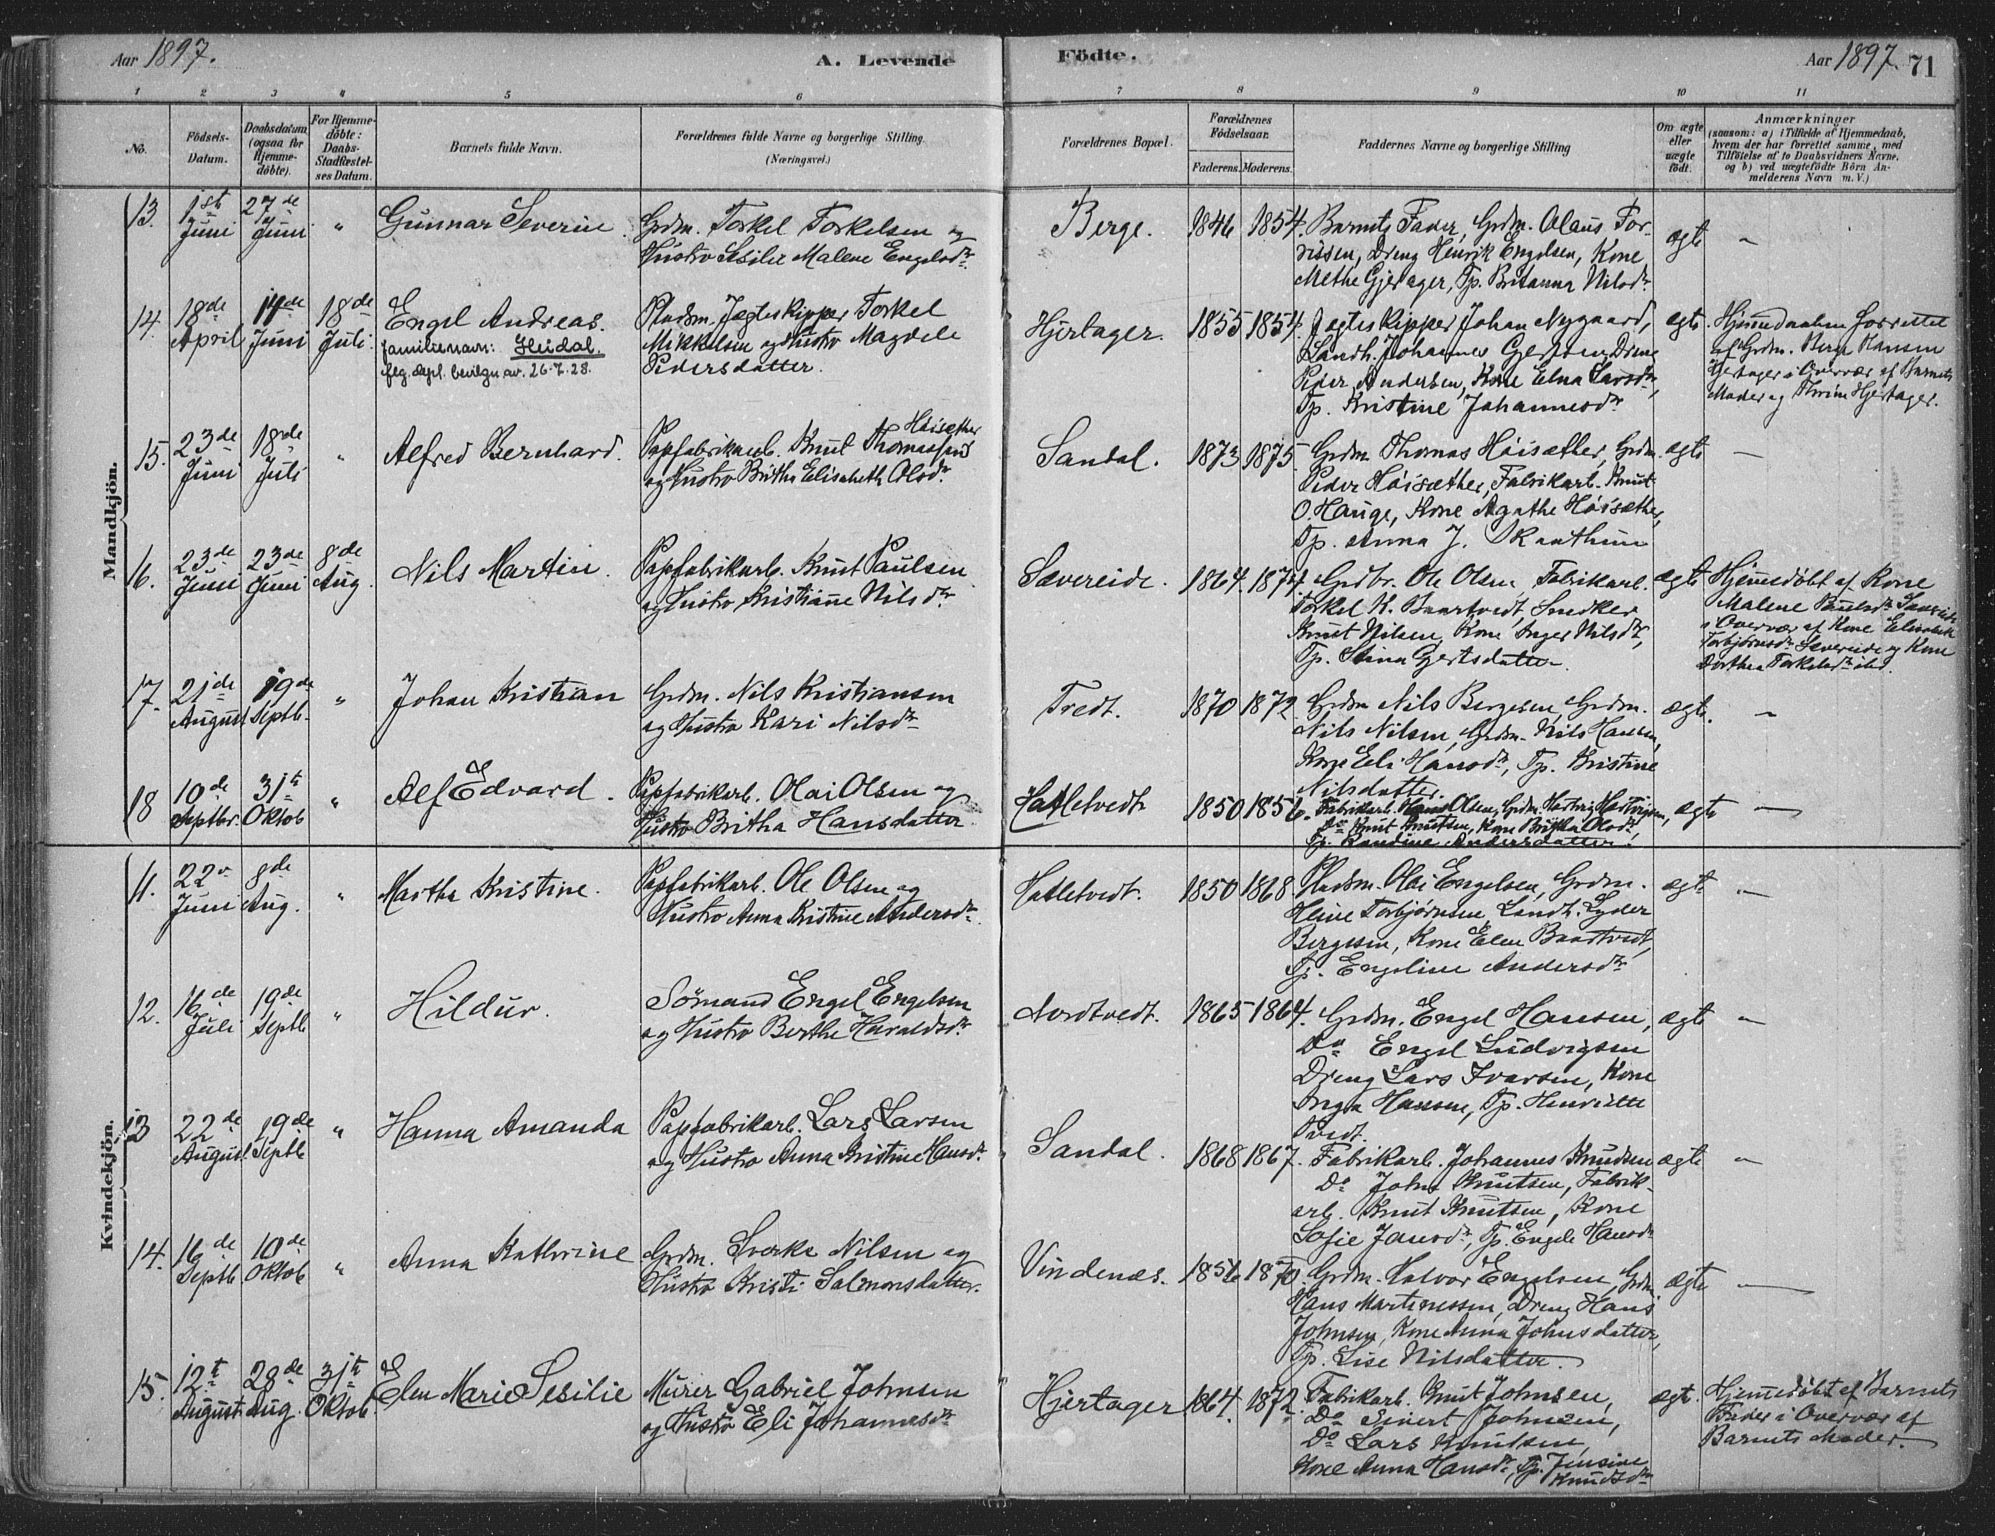 Aar 1897.
A. Levende
Födte.
Aar 1897. 71
1 2 3 4 5 6 7 8 9 10 11
No.
Födsels-Datum.
Daabsdatum (ogsaa for Hjemme-döbte).
For Hjemme-döbte: Daabs-Stadfæstel-ses Datum.
Barnets fulde Navn.
Forældrenes fulde Navne og borgerlige Stilling.
(Næringsvei.)
Forældrenes Bopæl.
Forældrenes Födselsaar.
Faderens. Moderens.
Faddernes Navne og borgerlige Stilling
Om ægte eller uægte födt.
Anmærkninger
(saasom: a) i Tilfælde af Hjemmedaab,
hvem der har forrettet samme, med
Tilföielse af to Daabsvidners Navne,
og b) ved uægtefödte Börn An-
melderens Navn m. V.)
Mandkjön.
13. 1st Juni 27de Juni " Gunnar Severin. Grdm. Torkel Torkelsen og
Hustro Sesilie Malene Engelsdr.
Berge. 1846 1854. Barnets Fader, Grdm. Olaus Tor-
rissen, Dreng Henrik Engelsen, Kone
Methe Gjerager, Tp. Britanna Nilsdr.
ægte "
14. 18de April 14de Juni 18de Juli Engel Andreas.
familienavn: Heidal.
flg. dept. bevilgn. av. 26.7.28.
Pladsm. Jægteskipper Torkel
Mikkelsen og Hustro Magdele
Pedersdatter.
Hjertager. 1855 1854. Jægteskipper Johan Nygaard,
Landh. Johannes Gjertsen, Dreng
Peder Andersen, Kone Elna Larsdr,
Tp. Kristine Johannesdr
ægte Hjemmedaaben forrettet
af Grdm. Berge Hansen
Hjertager i Overvær af Barnets
Moder og Hjertager.
15. 23de Juni 18de Juli " Alfred Bernhard. Papfabrikarb. Knut Thomassen Høisæther
og Hustro Britha Elisabeth Olsdr.
Sandal. 1873 1875 Grdm. Thomas Høisæther, Grdm.
Peder Høisæther, Fabrikarb. Knut
O. Hauge, Kone Agathe Høisæther,
Tp. Anna J. Skaathun
ægte —
16. 23de Juni 23de Juni 8de Aug. Nils Martin. Papfabrikarb. Knut Paulsen
og Hustro Kristiane Nilsdr.
Sævereide. 1864. 1874. Grdbr. Ole Olsen, Fabrikarb.
Torkel K. Baartvedt, Snedker
Knut Nilsen, Kone Inger Nilsdr,
Tp. Stina Gjertsdatter.
ægte Hjemmedøbt af Kone
Malene Sævereide
i Overvær af Kone Elisabeth
Torbjørnsdr. Sævereide og Kone
Dorthea Torkelsdr. ibd.
17. 21de August 19de Septb. " Johan Kristian Grdm. Nils Kristiansen
og Hustro Kari Nilsdr
Tredt. 1870 1872 Grdm Nils Bergesen, Grdm.
Nils Nilsen, Grdm. Nils Hansen,
Kone Eli Hansdr, Tp. Kristine
Nilsdatter.
ægte. "
18 10de Septbr. 31te Oktob " Alf Edvard. Papfabrikarb. Olai Olsen og
Hustro Britha Hansdatter.
Hatletvedt 1850 1856. Fabrikarb. Hans Olsen, Grdm. Hartvig Hartvigsen,
Do Knut Knutsen, Kone Britha Olsdr,
Tp. Randine Andersdatter.
ægte —
Kvindekjön.
11. 22de Juni 8de Aug. " Martha Kristine. Papfabrikarb. Ole Olsen og
Hustro Anna Kristine Andersdr.
Hatletvedt. 1850 1868 Pladsm. Olai Engelsen, Grdm.
Heine Torbjørnsen, Landh. Lyder
Bergesen, Kone Elen Baartvedt,
Tp. Engeline Andersdr
ægte "
12. 16de Juli 19de Septb " Hildur. Sømand Engel Engelsen
og Hustro Berthe Haraldsdr
Nordtvedt. 1865 1864. Grdm. Engel Hansen,
Do Engel Ludvigsen
Dreng Lars Ivarsen, Kone
Inga Hansen, Tp. Henriette
Tvedt.
ægte "
13 22de August 19de Septb " Hanna Amanda Papfabrikarb. Lars Larsen
og Hustro Anna Kristine Hansdr
Sandal. 1868 1867. Fabrikarb. Johannes Knudsen
Do John Knutsen, Fabrik-
arb. Knut Knutsen, Kone
Sofie Jansdr, Tp. Engele Hansdr
ægte "
14. 16de Septb 10de Oktob " Anna Kathrine Grdm. Sverke Nilsen og
Hustro Kristi Salmonsdatter.
Vindenæs. 1856 1870. Grdm. Halvor Engelsen, Grdm
Hans Martinessen, Dreng Hans
Johnsen, Kone Anna Johnsdatter,
Tp. Lise Nilsdatter.
ægte —
15. 12te August 28de Aug. 31te Oktob. Elen Marie Sesilie Murer Gabriel Johnsen
og Hustro Eli Johannesdr
Hjertager 1864. 1872. Fabrikarb. Knut Johnsen,
Do Sivert Johnsen,
Do Lars Knutsen,
Kone Anna Hansdr, Tp. Jensine
Knudsdr
ægte. Hjemmedøbt af Barnets
Fader i Overvær af
Barnets Moder.